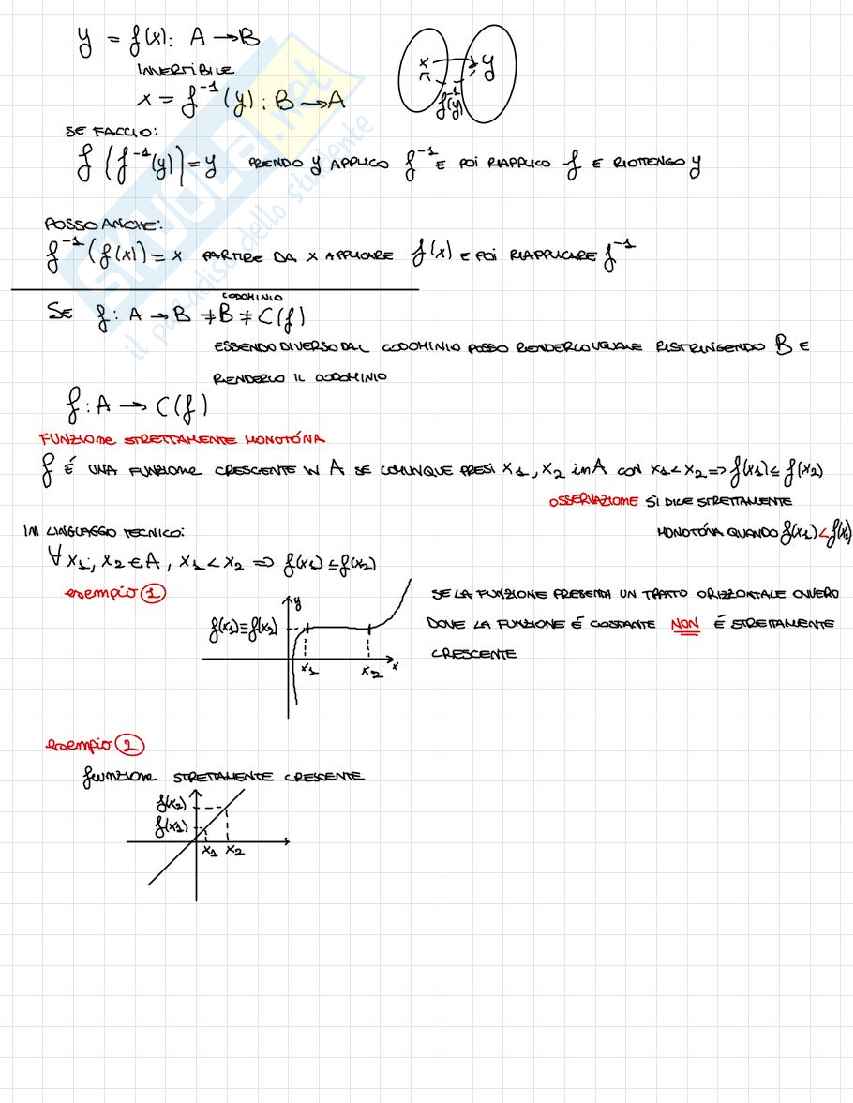 y = f(x): A → B
INVERTIBILE
x = f⁻¹(y): B → A
x y
f⁻¹(y)
SE FACCIO:
f(f⁻¹(y)) = y PRENDO y APPLICO f⁻¹ E POI RIAPPLICO f E RIOTTENGO y
POSSO ANCHE:
f⁻¹(f(x)) = x PARTIRE DA x APPLICARE f(x) E POI RIAPPLICARE f⁻¹
CODOMINIO
SE f: A → B ≠ B ≠ C(f)
ESSENDO DIVERSO DAL CODOMINIO POSSO RENDERLO UGUALE RISTRINGENDO B E
RENDERLO IL CODOMINIO
f: A → C(f)
FUNZIONE STRETTAMENTE MONOTÓNA
f É UNA FUNZIONE CRESCENTE IN A SE COMUNQUE PRESI x₁, x₂ in A CON x₁ < x₂ => f(x₁) ≤ f(x₂)
OSSERVAZIONE SI DICE STRETTAMENTE
MONOTÓNA QUANDO f(x₁) < f(x₂)
IN LINGUAGGIO TECNICO:
∀ x₁, x₂ ∈ A, x₁ < x₂ => f(x₁) ≤ f(x₂)
esempio 1
y
f(x₁) = f(x₂)
x₁ x₂ x
SE LA FUNZIONE PRESENTA UN TRATTO ORIZZONTALE OVVERO
DOVE LA FUNZIONE É COSTANTE NON É STRETTAMENTE
CRESCENTE
esempio 2
funzione STRETTAMENTE CRESCENTE
f(x₂)
f(x₁)
x₁ x₂
SKUOLA.net
il paradiso dello studente